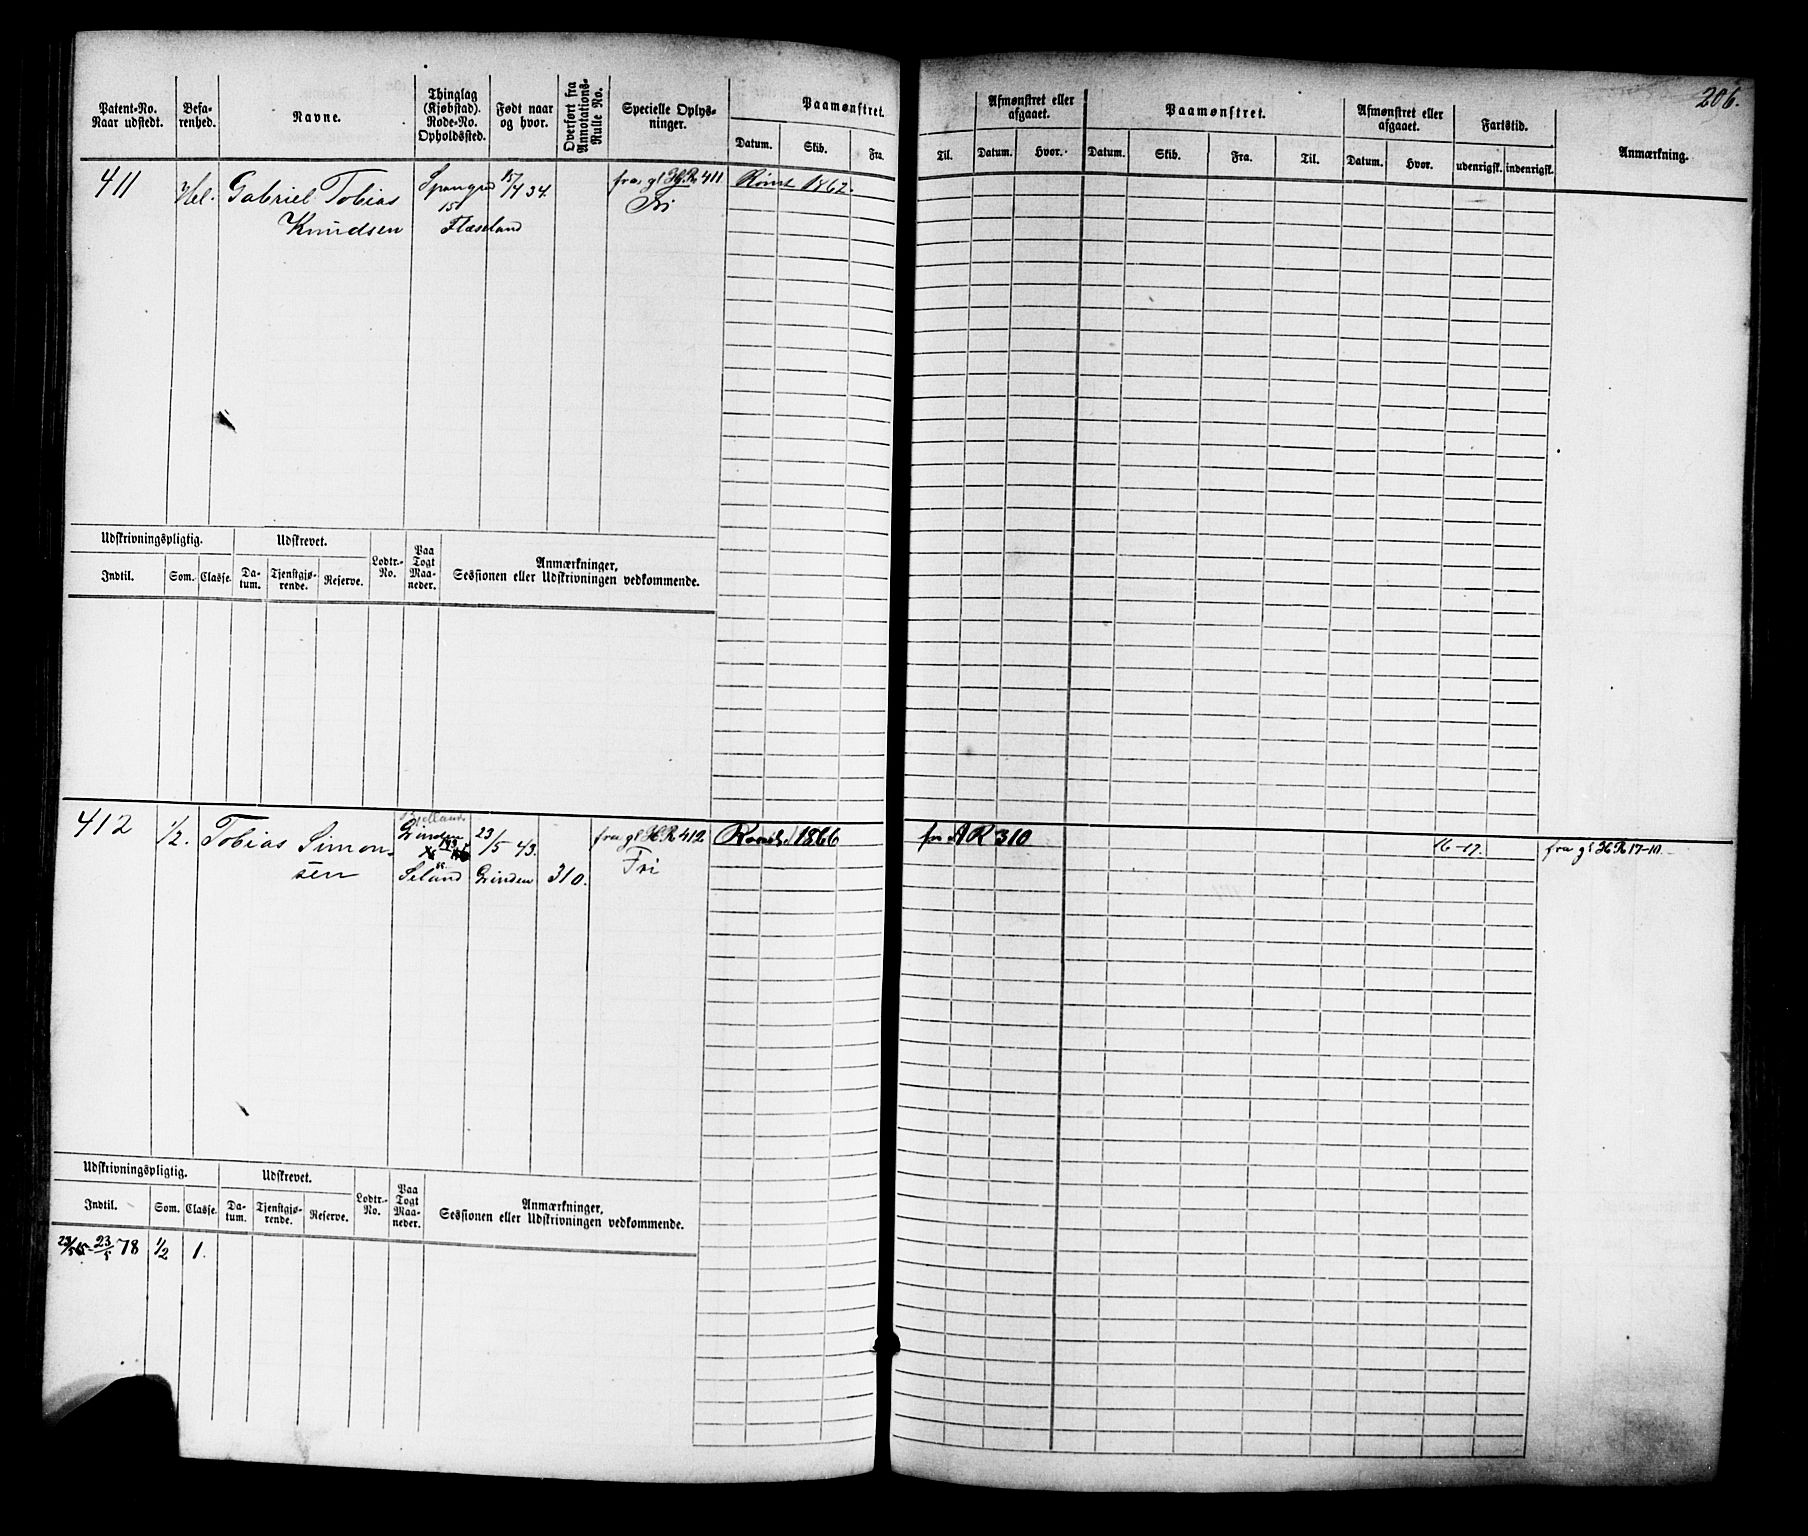 206.
Patent-No. Naar udstedt.
Befa-renhed.
Navne.
Thinglag (Kjøbstad). Rode-No. Opholdssted.
Født naar og hvor.
Overført fra Annotations-Rulle No.
Specielle Oplys-ninger.
Paamønstret.
Datum. Skib. Fra. Til.
Afmønstret eller afgaaet.
Datum. Hvor.
Paamønstret.
Datum. Skib. Fra. Til.
Afmønstret eller afgaaet.
Datum. Hvor.
Fartstid.
udenrigsk. indenrigsk.
Anmærkning.
411 Hel. Gabriel Tobias 34. fra gl H.R. 411 1862.
Knudsen 15 Flaseland Fri
Udskrivningspligtig. Udskrevet. Lodtr.-No. Paa Togt Maa-neder. Anmærkninger, Sessionen eller Udskrivningen vedkommende.
Indtil. Som. Classe. Da-tum. Tjenstgjø-rende. Reserve.
412 1/2. Tobias Simon- Grinden 23/5 43. fra gl H.R 412 1866 fr AR 310 16-17. fra gl H R 17-10.
sen Seland Grinden 310. Fri
Udskrivningspligtig. Udskrevet. Lodtr.-No. Paa Togt Maa-neder. Anmærkninger, Sessionen eller Udskrivningen vedkommende.
Indtil. Som. Classe. Da-tum. Tjenstgjø-rende. Reserve.
23/5 - 23/5 78 1/2 1.